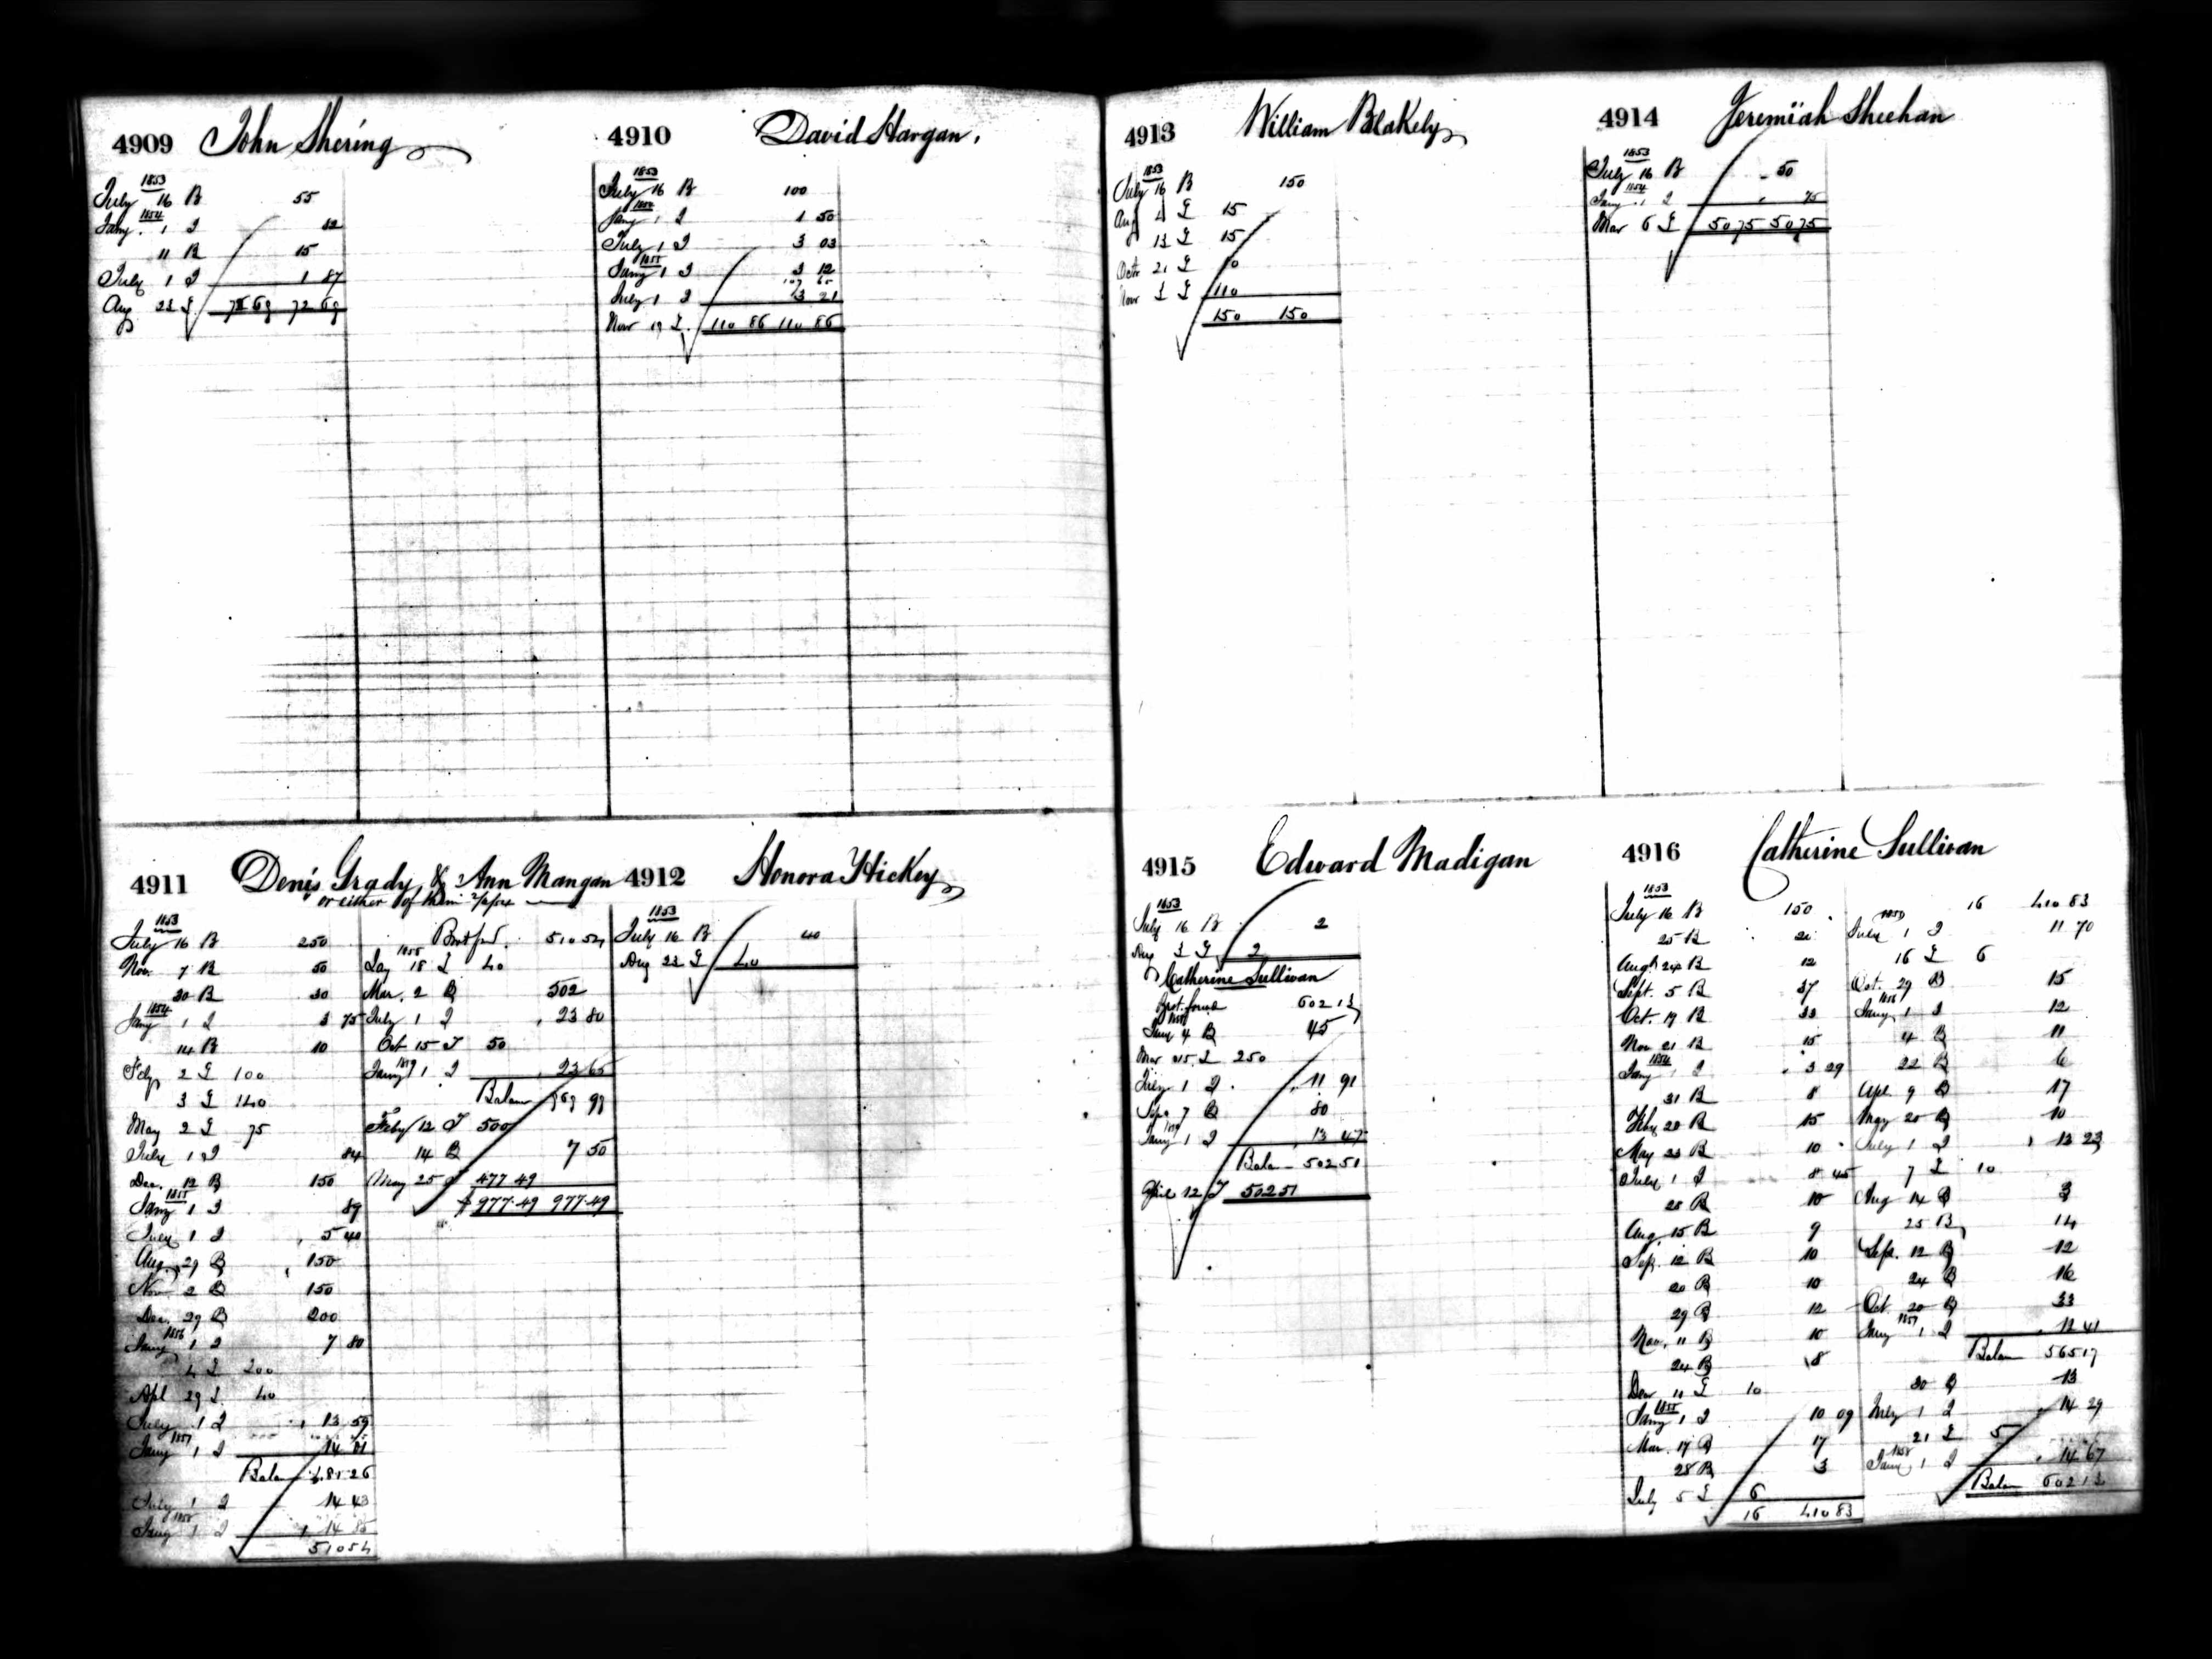 4909 John Shering
1853
July 16 B 55
1854
Jany. 1 I 82
11 B 15
July 1 I 1 87
Aug 23 £ 72 69 72 69
4910 David Hargan.
1853
July 16 B 100
1854
Jany 1 I 1 50
July 1 I 3 03
1855
Jany 1 I 3 12
107 65
July 1 I 3 21
Nov 19 £ 110 86 110 86
4911 Denis Grady & Ann Mangan
or either of them
1853
July 16 B 250
Nov. 7 B 50
30 B 30
1854
Jany 1 I 3 75
14 B 10
Feby 2 £ 100
3 £ 140
May 2 £ 75
July 1 I 84
Dec. 12 B 150
1855
Jany 1 I 89
July 1 I 5 40
Aug. 29 B 150
Nov 2 B 150
Dec. 29 B 200
1856
Jany 1 I 7 80
4 £ 200
Apl 29 £ 40
July 1 I 13 59
1857
Jany 1 I 14
Balan 481 26
July 1 I 14 43
1858
Jany 1 I 14 85
510 54
Brot ford. 510 54
1858
Jany 18 £ 40
Mar. 2 B 502
July 1 I 23 80
Oct 15 £ 50
1859
Jany 1 I 23 65
Balan 969 99
Feby 12 £ 500
14 B 7 50
May 25 £ 477 49
$ 977.49 977.49
4912 Honora Hickey
1853
July 16 B 40
Aug 23 £ 40
4913 William Blakely
1853
July 16 B 150
Aug 4 £ 15
13 £ 15
Octr 21 £ 10
Nov 3 £ 110
150 150
4914 Jeremiah Sheehan
1853
July 16 B 50
1854
Jany. 1 I 75
Mar 6 £ 50 75 50 75
4915 Edward Madigan
1853
July 16 B 2
Aug 3 £ 2
Catherine Sullivan
Brot. forwd 602 13
1858
Jany 4 B 45
Mar 15 £ 250
July 1 I 11 91
Sepr 7 B 80
1859
Jany 1 I 13 47
Balan 502 51
April 12 £ 502 51
4916 Catherine Sullivan
1853
July 16 B 150
25 B 20
Augt 24 B 12
Sept. 5 B 37
Oct. 19 B 33
Nov 21 B 15
1854
Jany 1 I 3 29
31 B 8
Feby 28 B 15
May 23 B 10
July 1 I 8 45
25 B 10
Aug. 15 B 9
Sep. 12 B 10
20 B 10
29 B 12
Nov. 11 B 10
24 B 8
Decr 11 £ 10
1855
Jany 1 I 10 09
Mar. 17 B 17
28 B 3
July 5 £ 6
16 410 83
16 410 83
1855
July 1 I 11 70
16 £ 6
Oct. 29 B 15
1856
Jany 1 I 12
4 B 11
22 B 6
Apl. 9 B 17
May 20 B 10
July 1 I 13 23
7 £ 10
Aug 14 B 3
25 B 14
Sepr. 12 B 12
24 B 16
Oct. 20 B 33
1857
Jany 1 I 12 41
Balan 565 17
30 B 13
July 1 I 14 29
21 £ 5
1858
Jany 1 I 14 67
Balan 602 13